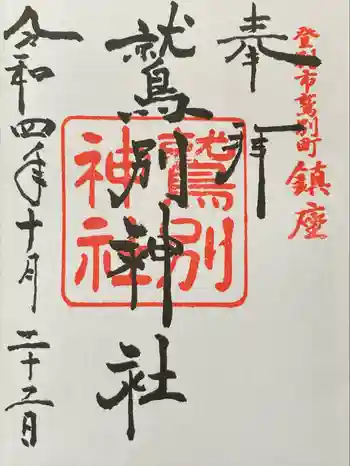 登別市鷲別町
鎮座
奉拝
鷲別神社
鷲別
神社
令和四年十月二十二日